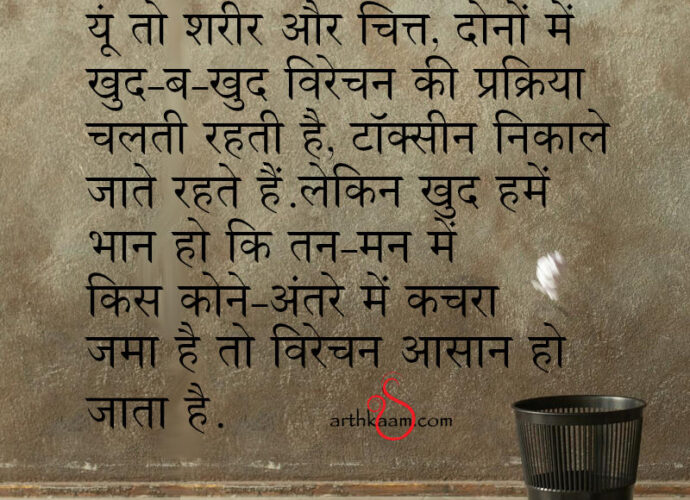 यूं तो शरीर और चित्त, दोनों में
खुद-ब-खुद विरेचन की प्रक्रिया
चलती रहती है, टॉक्सीन निकाले
जाते रहते हैं.लेकिन खुद हमें
भान हो कि तन-मन में
किस कोने-अंतरे में कचरा
जमा है तो विरेचन आसान हो
जाता है.
arthkaam.com